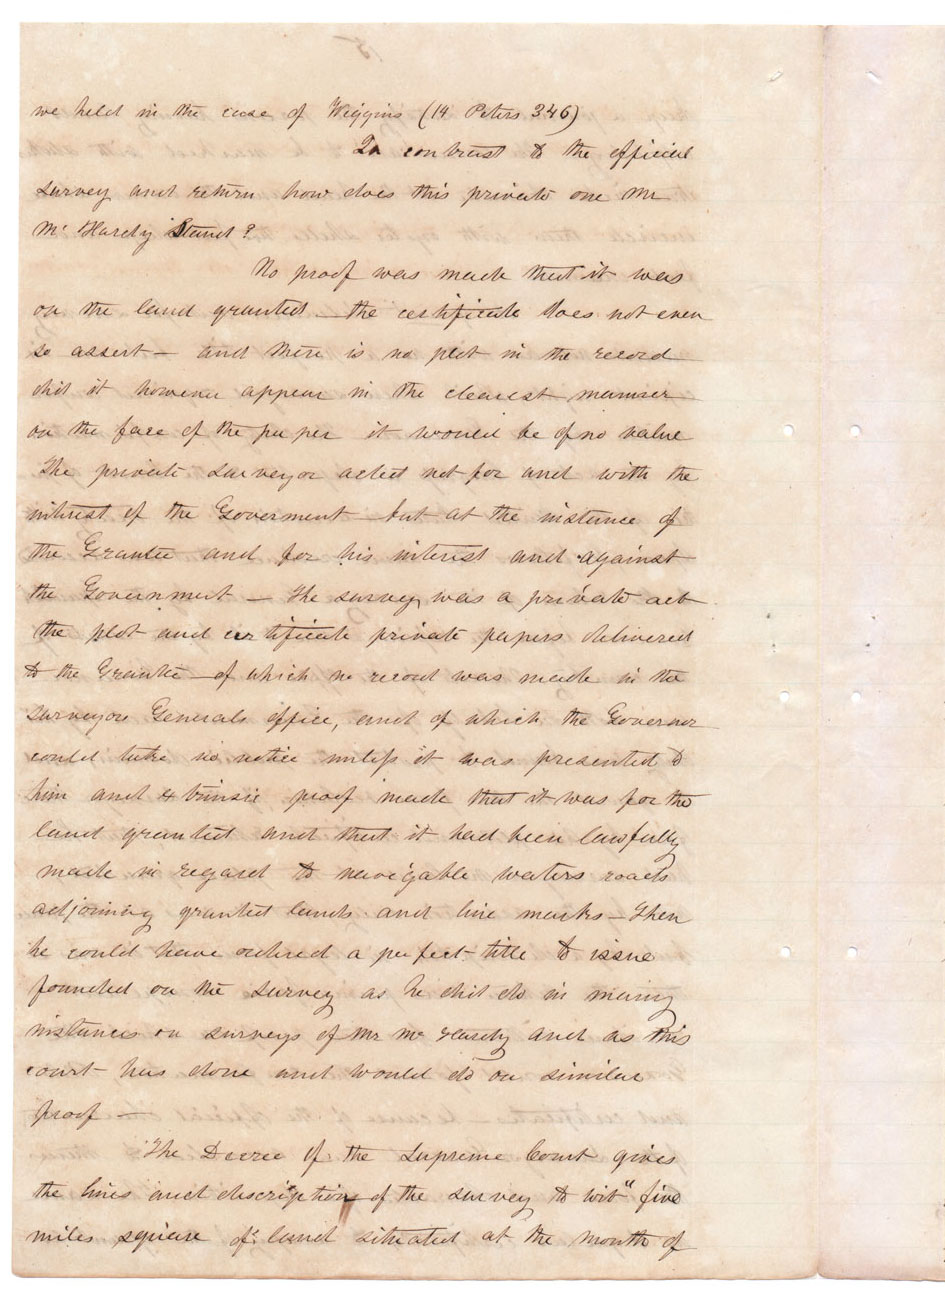 15
we held in the case of Wiggins (14 Peters 346)
In contrast to the official
survey and return how does this private one Mr
Mc Hardy Stand?
No proof was made that it was
on the land granted — the certificate does not even
so assert — and there is no plot in the record
did it however appear in the clearest manner
on the face of the paper it would be of no value
The private surveyor acted not for and with the
interest of the Goverment — but at the instance of
the Grantee and for his interest and against
the Government — The survey was a private act
the plot and certificate private papers delivered
to the Grantee — of which no record was made in the
surveyor Generals office, and of which the Governor
could take no notice unless it was presented to
him and extrinsic proof made that it was for the
land granted and that it had been lawfully
made in regard to navigable waters roads
adjoining granted lands and line marks — Then
he could have ordered a perfect title to issue
founded on the survey as he did do in many
instances on surveys of Mr Mc Hardy and as this
court has done and would do on similar
proof —
The Decree of the Supreme Court gives
the lines and discription of the survey to wit "five
miles square of land situated at the mouth of